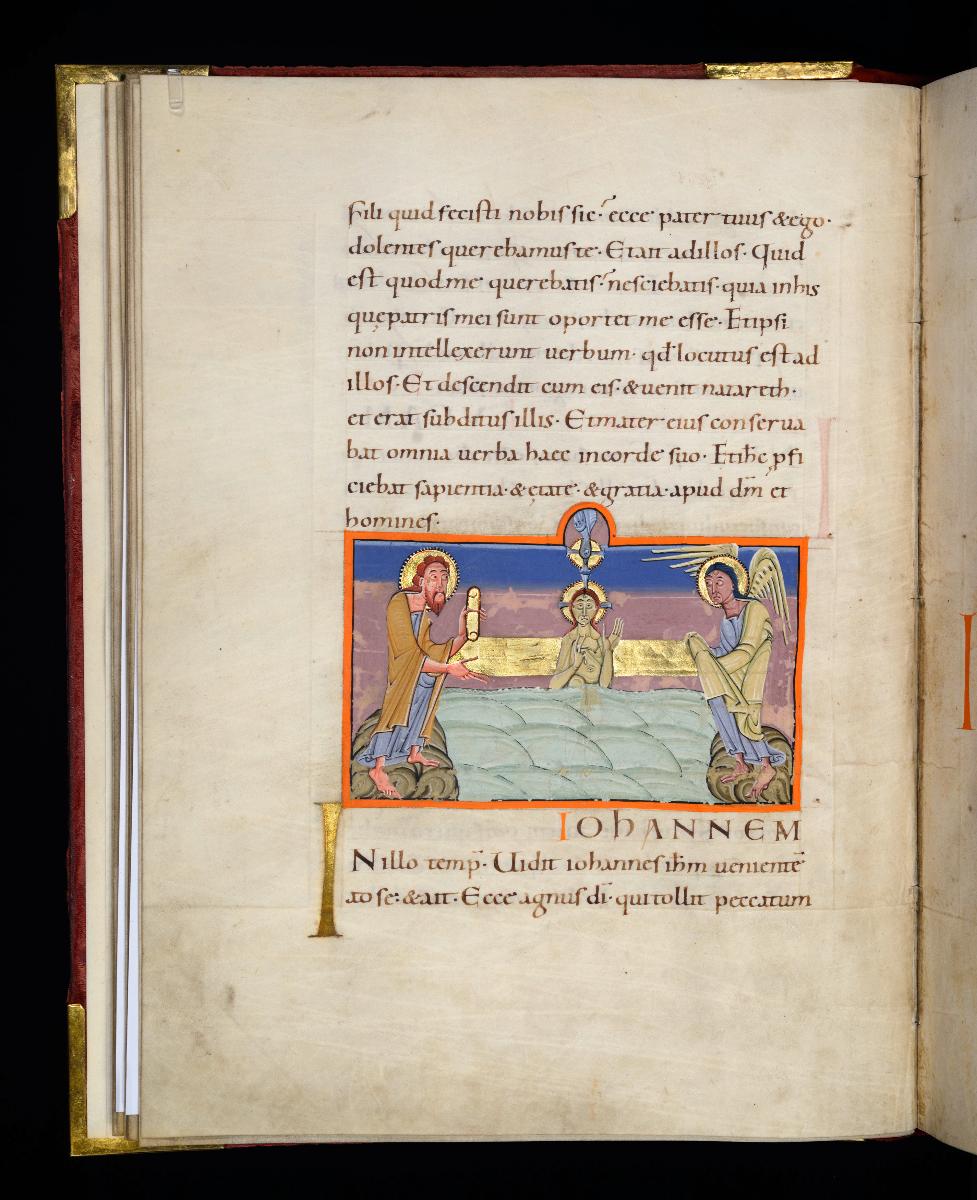 Fili quid fecisti nobis sic· ecce pater tuus & ego·
dolentes querebamus te· Et ait ad illos· Quid
est quod me querebatis· nesciebatis· quia in his
quę patris mei sunt oportet me esse· Et ipsi
non intellexerunt uerbum· qđ locutus est ad
illos· Et descendit cum eis· & uenit nazareth·
et erat subditus illis· Et mater eius conserua
bat omnia uerba haec in corde suo· Et ihc̄ ꝓfi
ciebat sapientia· & ętate· & gratia· apud dm̄ et
homines·
IOhANNEM
IN illo temp̄· Uidit iohannes ihm̄ uenientē
ad se· & ait· Ecce agnus dī· qui tollit peccatum